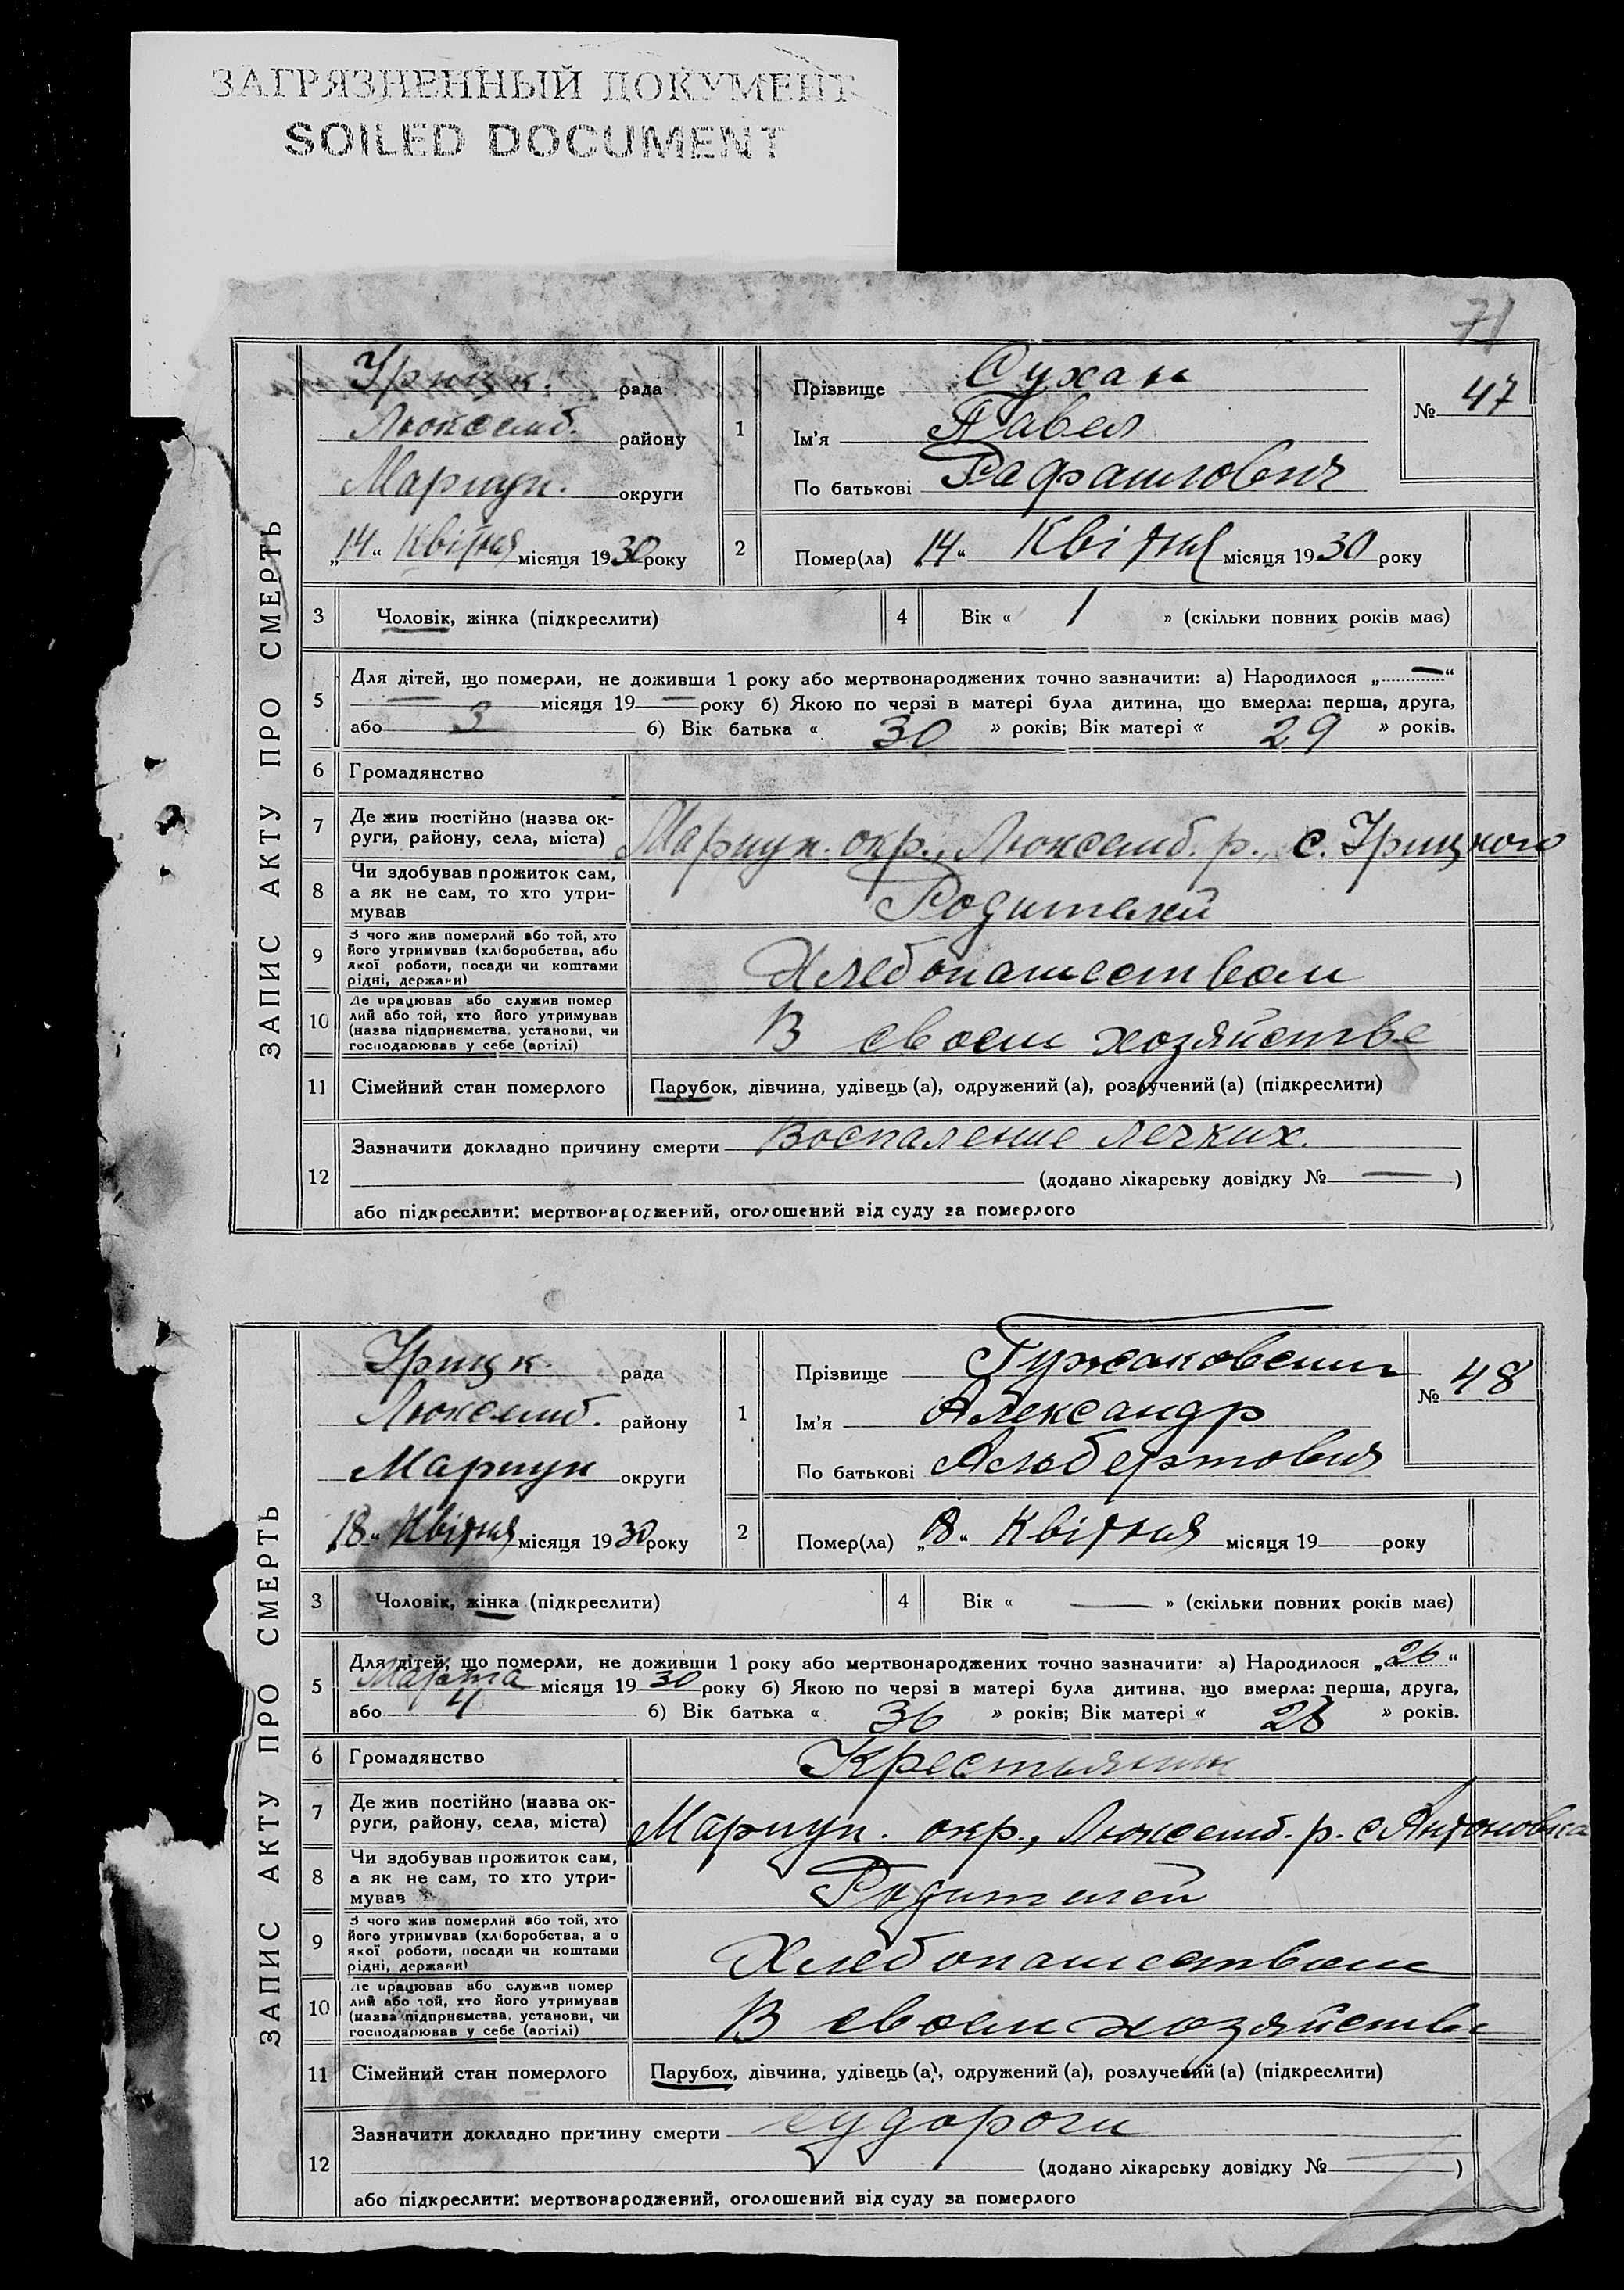 ЗАГРЯЗНЕННЫЙ ДОКУМЕНТ
SOILED DOCUMENT
71
ЗАПИС АКТУ ПРО СМЕРТЬ
Урицк. рада
Люксемб. району
Мариуп. округи
„14“ Квітня місяця 1930 року
1 Прізвище Сухан
Ім’я Павел
По батькові Рафаилович
№ 47
2 Помер(ла) „14“ Квітня місяця 1930 року
3 Чоловік, жінка (підкреслити)
4 Вік « 1 » (скільки повних років має)
5 Для дітей, що померли, не доживши 1 року або мертвонароджених точно зазначити: а) Народилося „—“
— місяця 19— року б) Якою по черзі в матері була дитина, що вмерла: перша, друга,
або 3 б) Вік батька « 30 » років; Вік матері « 29 » років.
6 Громадянство
7 Де жив постійно (назва ок-
руги, району, села, міста) Мариуп. окр., Люксемб. р., с. Урицкого
8 Чи здобував прожиток сам,
а як не сам, то хто утри-
мував Родителей
9 З чого жив померлий або той, хто
його утримував (хліборобства, або
якої роботи, посади чи коштами
рідні, держави) Хлебопашеством
10 Де працював або служив помер
лий або той, хто його утримував
(назва підприємства, установи, чи
господарював у себе (артілі) В своем хозяйстве
11 Сімейний стан померлого Парубок, дівчина, удівець (а), одружений (а), розлучений (а) (підкреслити)
12 Зазначити докладно причину смерти Воспаление легких.
(додано лікарську довідку № — )
або підкреслити: мертвонароджений, оголошений від суду за померлого
ЗАПИС АКТУ ПРО СМЕРТЬ
Урицк. рада
Люксемб. району
Мариуп округи
„18“ Квітня місяця 1930 року
1 Прізвище
Ім’я Александр
По батькові Альбертович
№ 48
2 Помер(ла) „18“ Квітня місяця 19 року
3 Чоловік, жінка (підкреслити)
4 Вік « — » (скільки повних років має)
5 Для дітей, що померли, не доживши 1 року або мертвонароджених точно зазначити: а) Народилося „26“
Марта місяця 1930 року б) Якою по черзі в матері була дитина, що вмерла: перша, друга,
або 4 б) Вік батька « 36 » років; Вік матері « 28 » років.
6 Громадянство Крестьянин
7 Де жив постійно (назва ок-
руги, району, села, міста) Мариуп. окр., Люксемб. р. с Антоновка
8 Чи здобував прожиток сам,
а як не сам, то хто утри-
мував Родителей
9 З чого жив померлий або той, хто
його утримував (хліборобства, а о
якої роботи, посади чи коштами
рідні, держави) Хлебопашеством
10 Де працював або служив помер
лий або той, хто його утримував
(назва підприємства, установи, чи
господарював у себе (артілі) В своем хозяйстве
11 Сімейний стан померлого Парубок, дівчина, удівець (а), одружений (а), розлучений (а) (підкреслити)
12 Зазначити докладно причину смерти судороги
(додано лікарську довідку № — )
або підкреслити: мертвонароджений, оголошений від суду за померлого